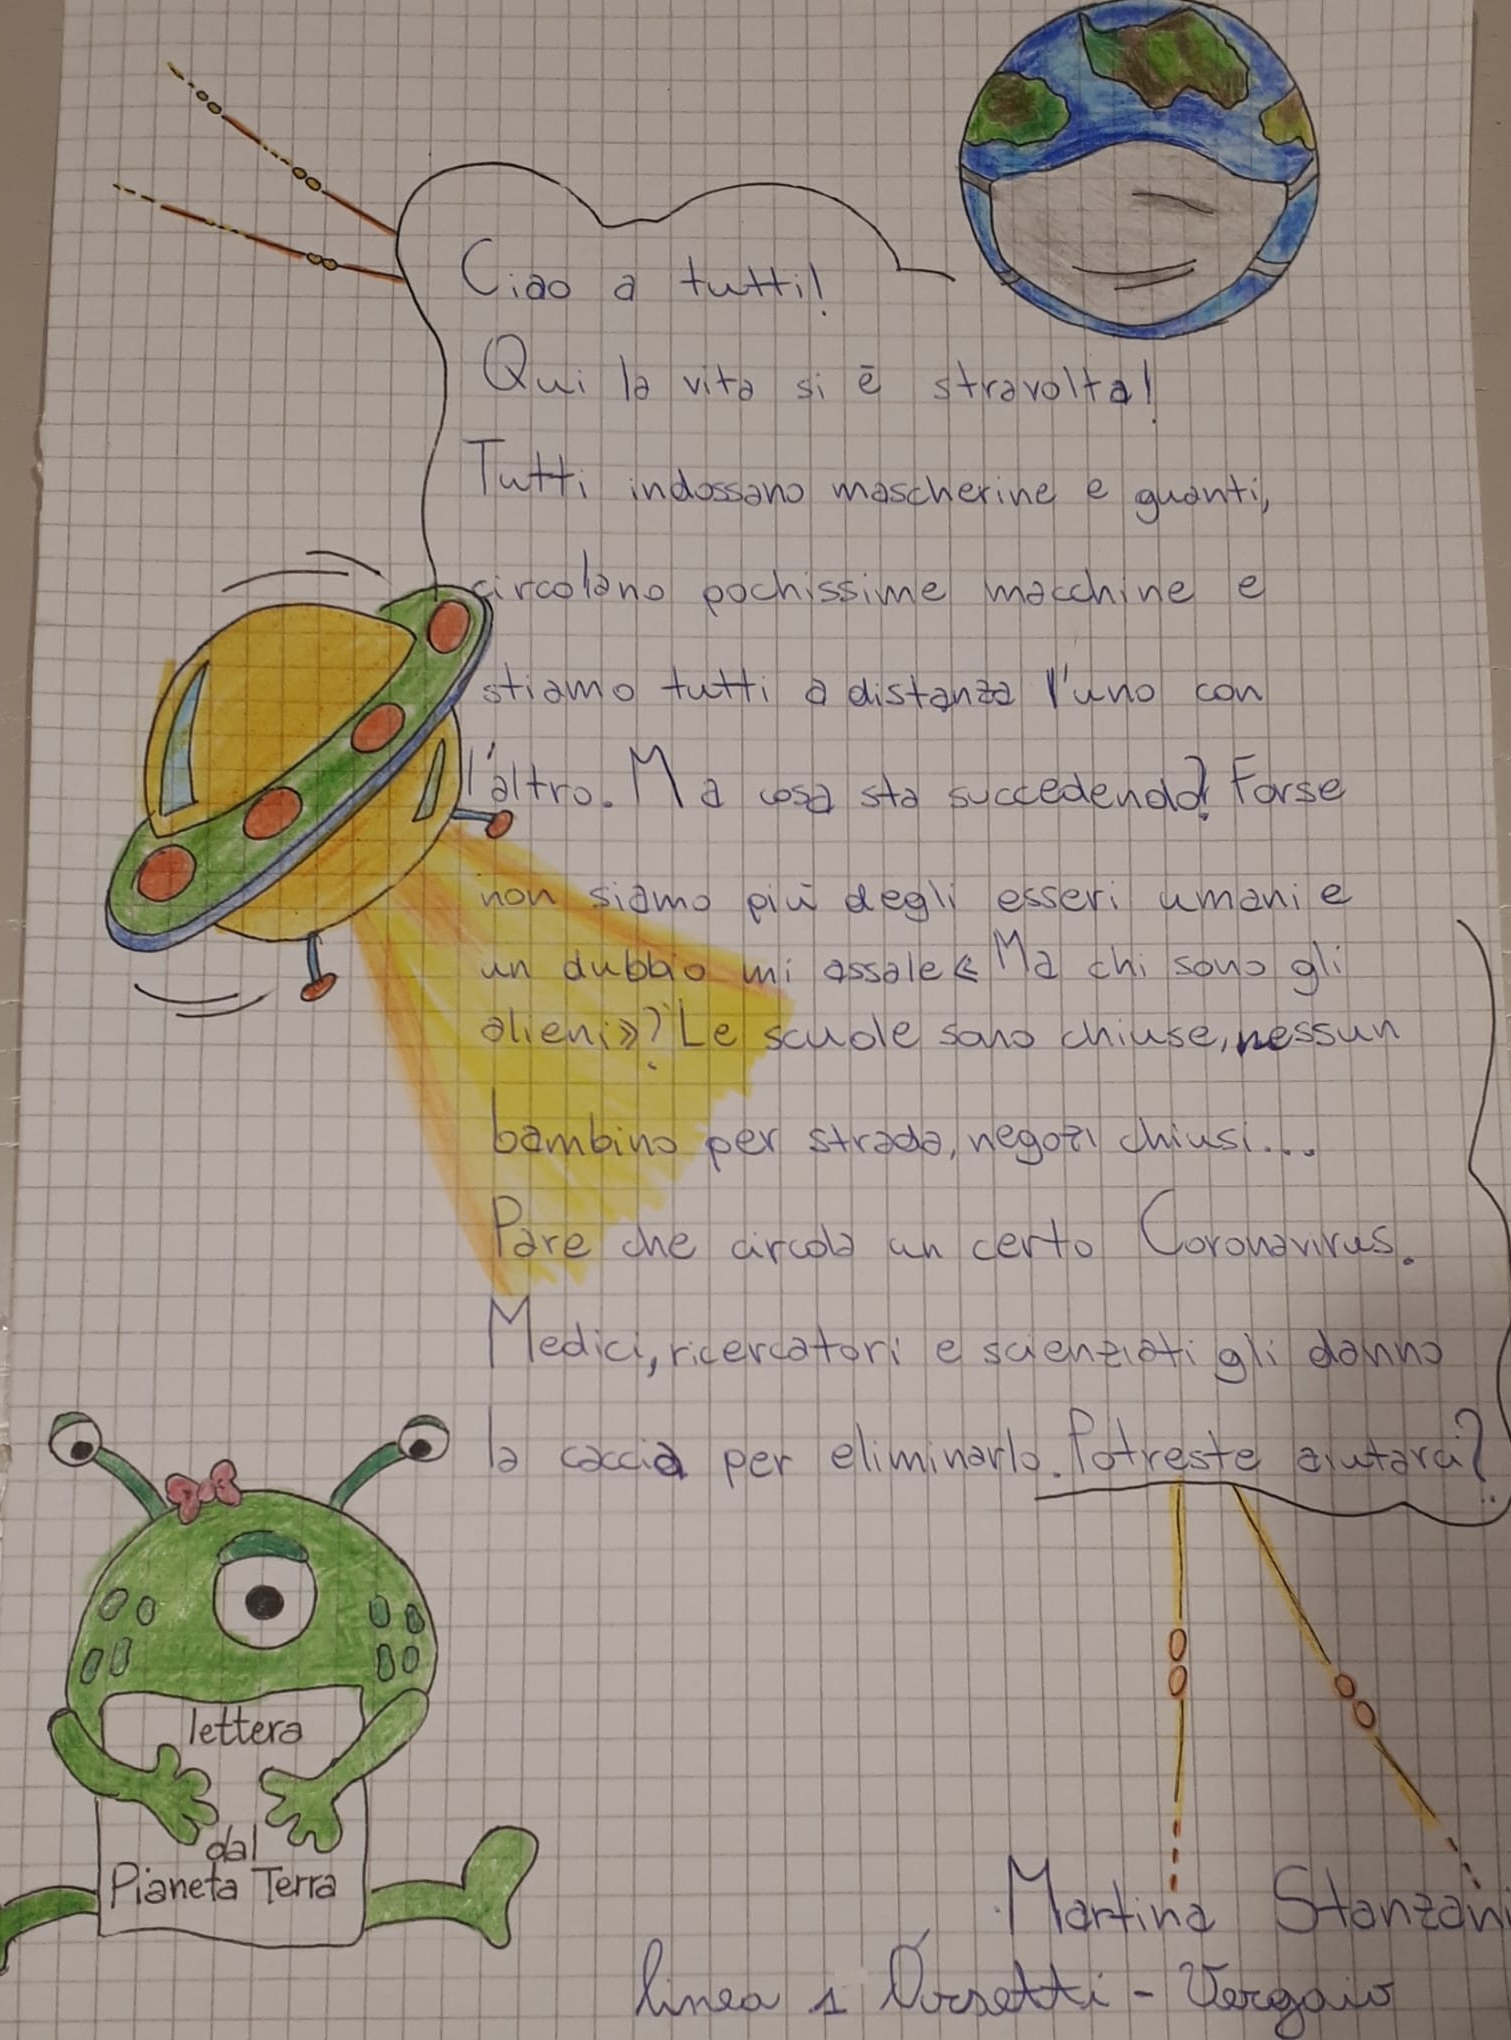 Ciao a tutti!
Qui la vita si è stravolta!
Tutti indossano mascherine e guanti,
circolano pochissime macchine e
stiamo tutti a distanza l'uno con
l'altro. Ma cosa sta succedendo? Forse
non siamo più degli esseri umani e
un dubbio mi assale « Ma chi sono gli
alieni»? Le scuole sono chiuse, nessun
bambino per strada, negozi chiusi...
Pare che circola un certo Coronavirus.
Medici, ricercatori e scienziati gli danno
la caccia per eliminarlo. Potreste aiutarci?
lettera
dal
Pianeta Terra
Martina Stanzani
linea 1 Orsetti - Vergaio